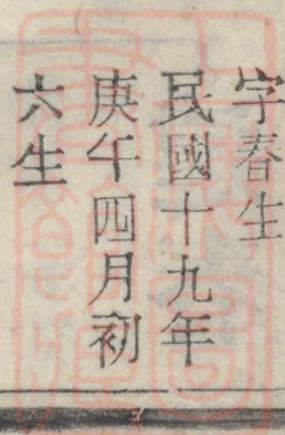 字春生
民國十九年
庚午四月初
六生